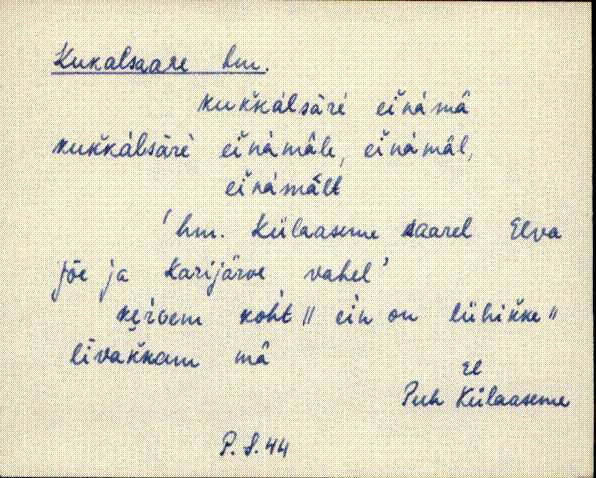 Kukalsaare hm.
kuk̆kàlsāʀè eĭnàmā
kuk̆kàlsāʀè eĭnàmāle, eĭnàmāl,
eĭnàmālt
'hm. Külaaseme saarel Elva
jõe ja Karijärve vahel'
koht // ein on lühik̆ke //
līvak̆kam mā
El
Puh Külaaseme
P. S. 44